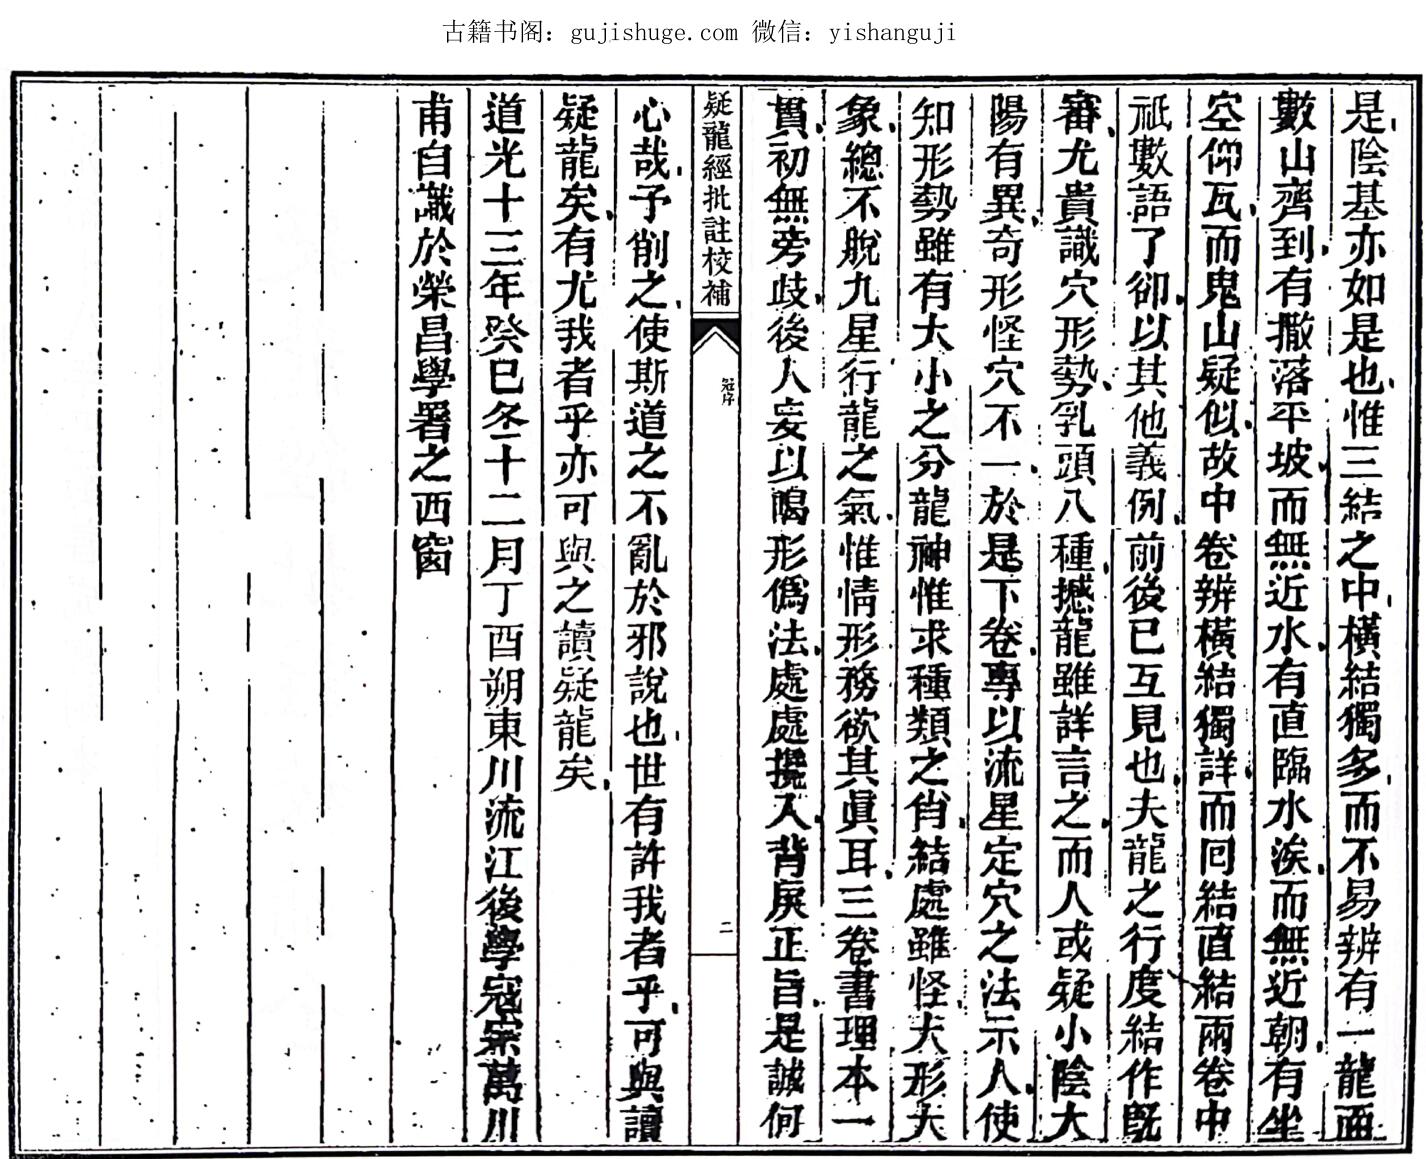 古籍书阁：gujishuge.com 微信：yishanguji
是陰基亦如是也惟三結之中橫結獨多而不易辨有一龍兩
數山齊到有撒落平坡而無近水有直臨水涘而無近朝有坐
空仰瓦而鬼山疑似故中卷辨橫結獨詳而回結直結兩卷中
祇數語了卻以其他義例前後已互見也夫龍之行度結作旣
審尤貴識穴形勢乳頭八種撼龍雖詳言之而人或疑小陰大
陽有異奇形怪穴不一於是下卷專以流星定穴之法示人使
知形勢雖有大小之分龍神惟求種類之肖結處雖怪大形大
象總不脫九星行龍之氣惟情形務欲其眞耳三卷書理本一
貫初無旁歧後人妄以喝形僞法處處攙入背戾正旨是誠何
疑龍經批註校補
寇序
二
心哉予削之使斯道之不亂於邪說也世有許我者乎可與讀
疑龍矣有尤我者乎亦可與之讀疑龍矣
道光十三年癸巳冬十二月丁酉朔東川流江後學寇宗萬川
甫自識於榮昌學署之西窗